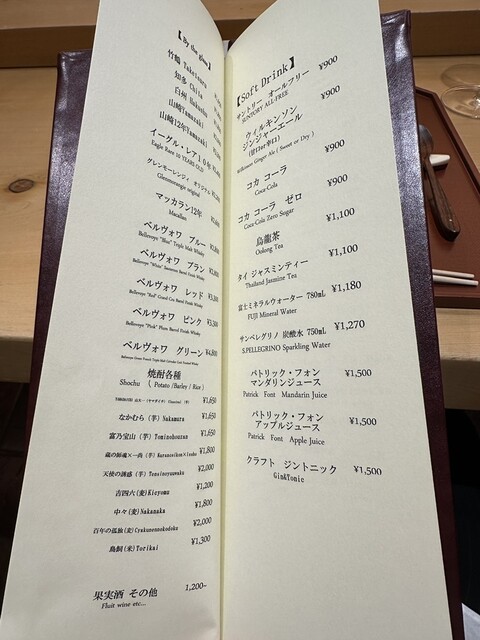 【By the glass】
竹鶴 Taketsuru
知多 Chita
白州 Hakushu
山崎 Yamazaki
山崎12年 Yamazaki
イーグル・レア10年
Eagle Rare 10 YEARS OLD
グレンモーレンジィ オリジナル
Glenmorangie original
マッカラン12年
Macallan
ベルヴォワ ブルー
Bellevoye "Blue" Triple Malt Whisky
ベルヴォワ ブラン
Bellevoye "White" Sauternes Barrel Finish Whisky
ベルヴォワ レッド
Bellevoye "Red" Grand Cru Barrel Finish Whisky
ベルヴォワ ピンク ¥3,300
Bellevoye "Pink" Plum Barrel Finish Whisky
ベルヴォワ グリーン ¥4,800
焼酎各種
Shochu ( Potato /Barley / Rice )
¥1,650
なかむら (芋) Nakamura ¥1,650
富乃宝山 (芋) Tominohouzan ¥1,650
¥1,800
天使の誘惑 (芋) ¥2,000
吉四六(麦) ¥1,200
中々(麦)Nakanaka ¥1,800
百年の孤独(麦) ¥2,000
鳥飼(米)Torikai ¥1,300
果実酒 その他 1,200~
Fluit wine etc...
【Soft Drink】
サントリー オールフリー ¥900
SUNTORY ALL-FREE
ウィルキンソン ¥900
ジンジャーエール
(甘口or辛口)
Wilkinson Ginger Ale ( Sweet or Dry )
コカ コーラ ¥900
Coca-Cola
コカ コーラ ゼロ ¥900
Coca-Cola Zero Sugar
烏龍茶 ¥1,100
Oolong Tea
タイ ジャスミンティー ¥1,100
Thailand Jasmine Tea
富士ミネラルウォーター 780mL ¥1,180
FUJI Mineral Water
サンペレグリノ 炭酸水 750mL ¥1,270
S.PELLEGRINO Sparkling Water
パトリック・フォン ¥1,500
マンダリンジュース
Patrick Font Mandarin Juice
パトリック・フォン ¥1,500
アップルジュース
Patrick Font Apple Juice
クラフト ジントニック ¥1,500
Gin&Tonic